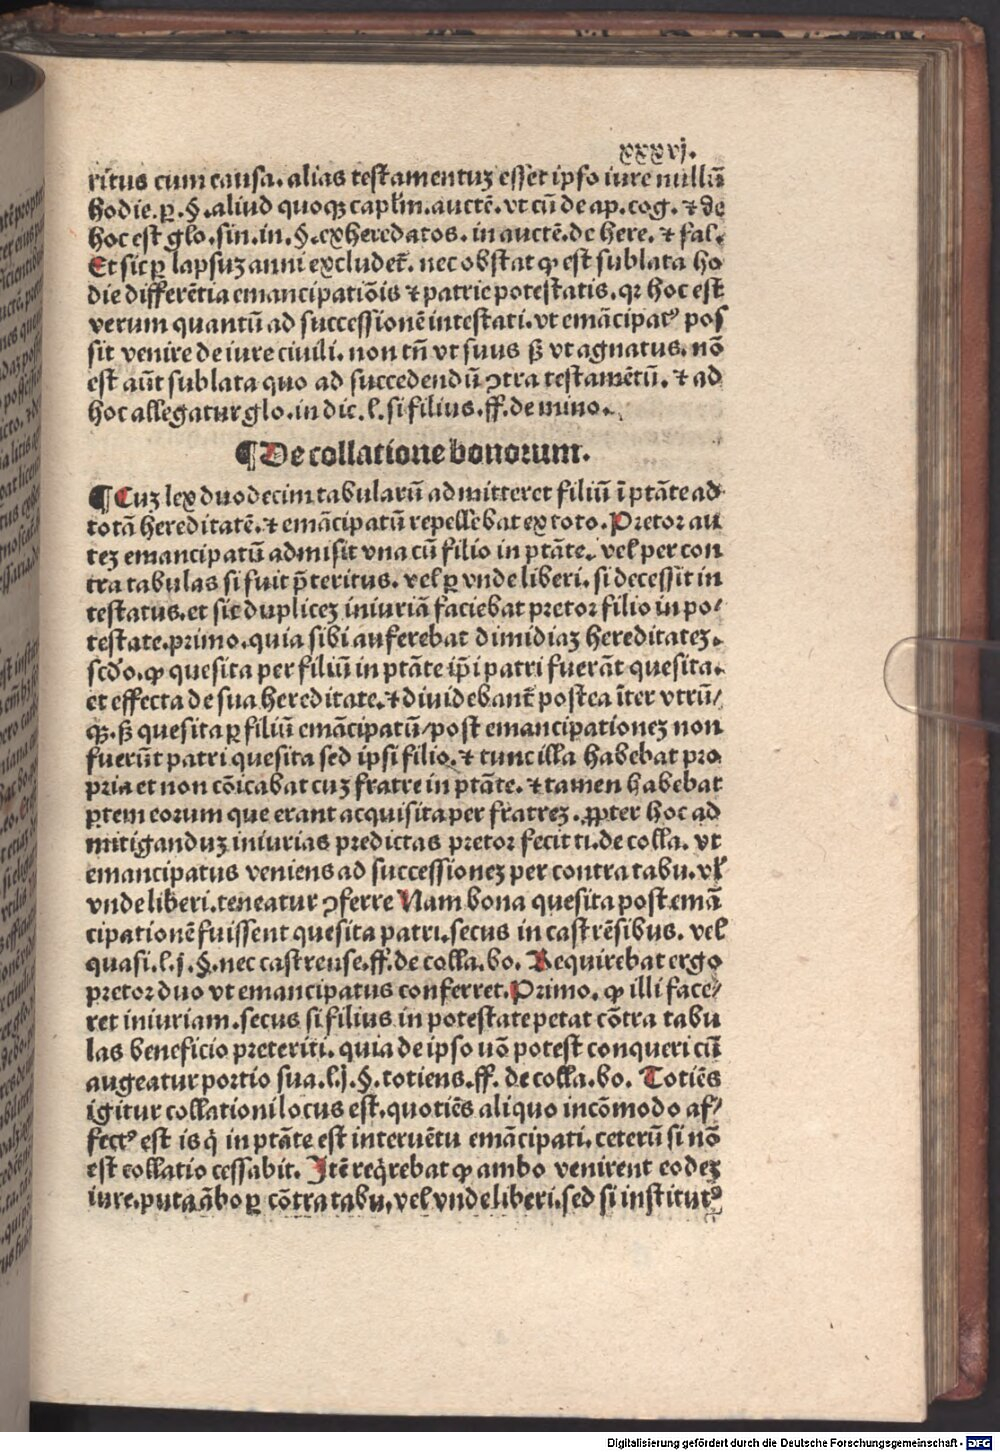 xxxvj.
ritus cum causa. alias testamentuz esset ipso iure nullū
hodie. ꝑ. §. aliud quoqꝫ caplm̄. auctē. vt cū de ap. cog. ⁊ de
hoc est glo. sin. in. §. exheredatos. in auctē. de here. ⁊ fal.
Et sic ꝑ lapsuz anni excludet᷑. nec obstat ꝙ est sublata ho
die differētia emancipatiōis ⁊ patrie potestatis. qꝛ hoc est
verum quantū ad successionē intestati. vt emācipatꝰ pos
sit venire de iure ciuili. non tn̄ vt suus ß vt agnatus. nō
est aūt sublata quo ad succedendū ↄtra testamētū. ⁊ ad
hoc allegatur glo. in dic. l. si filius. ff. de mino.
¶ De collatione bonorum.
¶ Cuz lex duodecim tabularū admitteret filiū ī ptāte ad
totā hereditatē. ⁊ emācipatū repellebat ex toto. Pretor au
tez emancipatū admisit vna cū filio in ptāte. vel per con
tra tabulas si fuit p̄teritus. vel ꝑ vnde liberi. si decessit in
testatus. et sic duplicez iniuriā faciebat pretor filio in po/
testate. primo. quia sibi auferebat dimidiaz hereditatez.
scd̓o. ꝙ quesita per filiū in ptāte ip̄i patri fuerāt quesita.
et effecta de sua hereditate. ⁊ diuidebant᷑ postea īter vtrū/
qꝫ. ß quesita ꝑ filiū emācipatū/ post emancipationez non
fuerūt patri quesita sed ipsi filio. ⁊ tunc illa habebat pro
pria et non cōicabat cuz fratre in ptāte. ⁊ tamen habebat
ꝑtem eorum que erant acquisita per fratrez. ꝓpter hoc ad
mitiganduz iniurias predictas pretor fecit ti. de colla. vt
emancipatus veniens ad successionez per contra tabu. vl̓
vnde liberi. teneatur ↄferre Nam bona quesita post emā
cipationē fuissent quesita patri. secus in castrēsibus. vel
quasi. l. j. §. nec castrense. ff. de colla. bo. Requirebat ergo
pretor duo vt emancipatus conferret. Primo. ꝙ illi face/
ret iniuriam. secus si filius in potestate petat cōtra tabu
las beneficio preteriti. quia de ipso nō potest conqueri cū
augeatur portio sua. l. j. §. totiens. ff. de colla. bo. Totiēs
igitur collationi locus est. quotiēs aliquo incōmodo af/
fectꝰ est is q̇ in ptāte est interuētu emācipati. ceterū si nō
est collatio cessabit. Itē req̇rebat ꝙ ambo venirent eodez
iure. puta ābo ꝑ cōtra tabu. vel vnde liberi. sed si institutꝰ
Digitalisierung gefördert durch die Deutsche Forschungsgemeinschaft - DFG